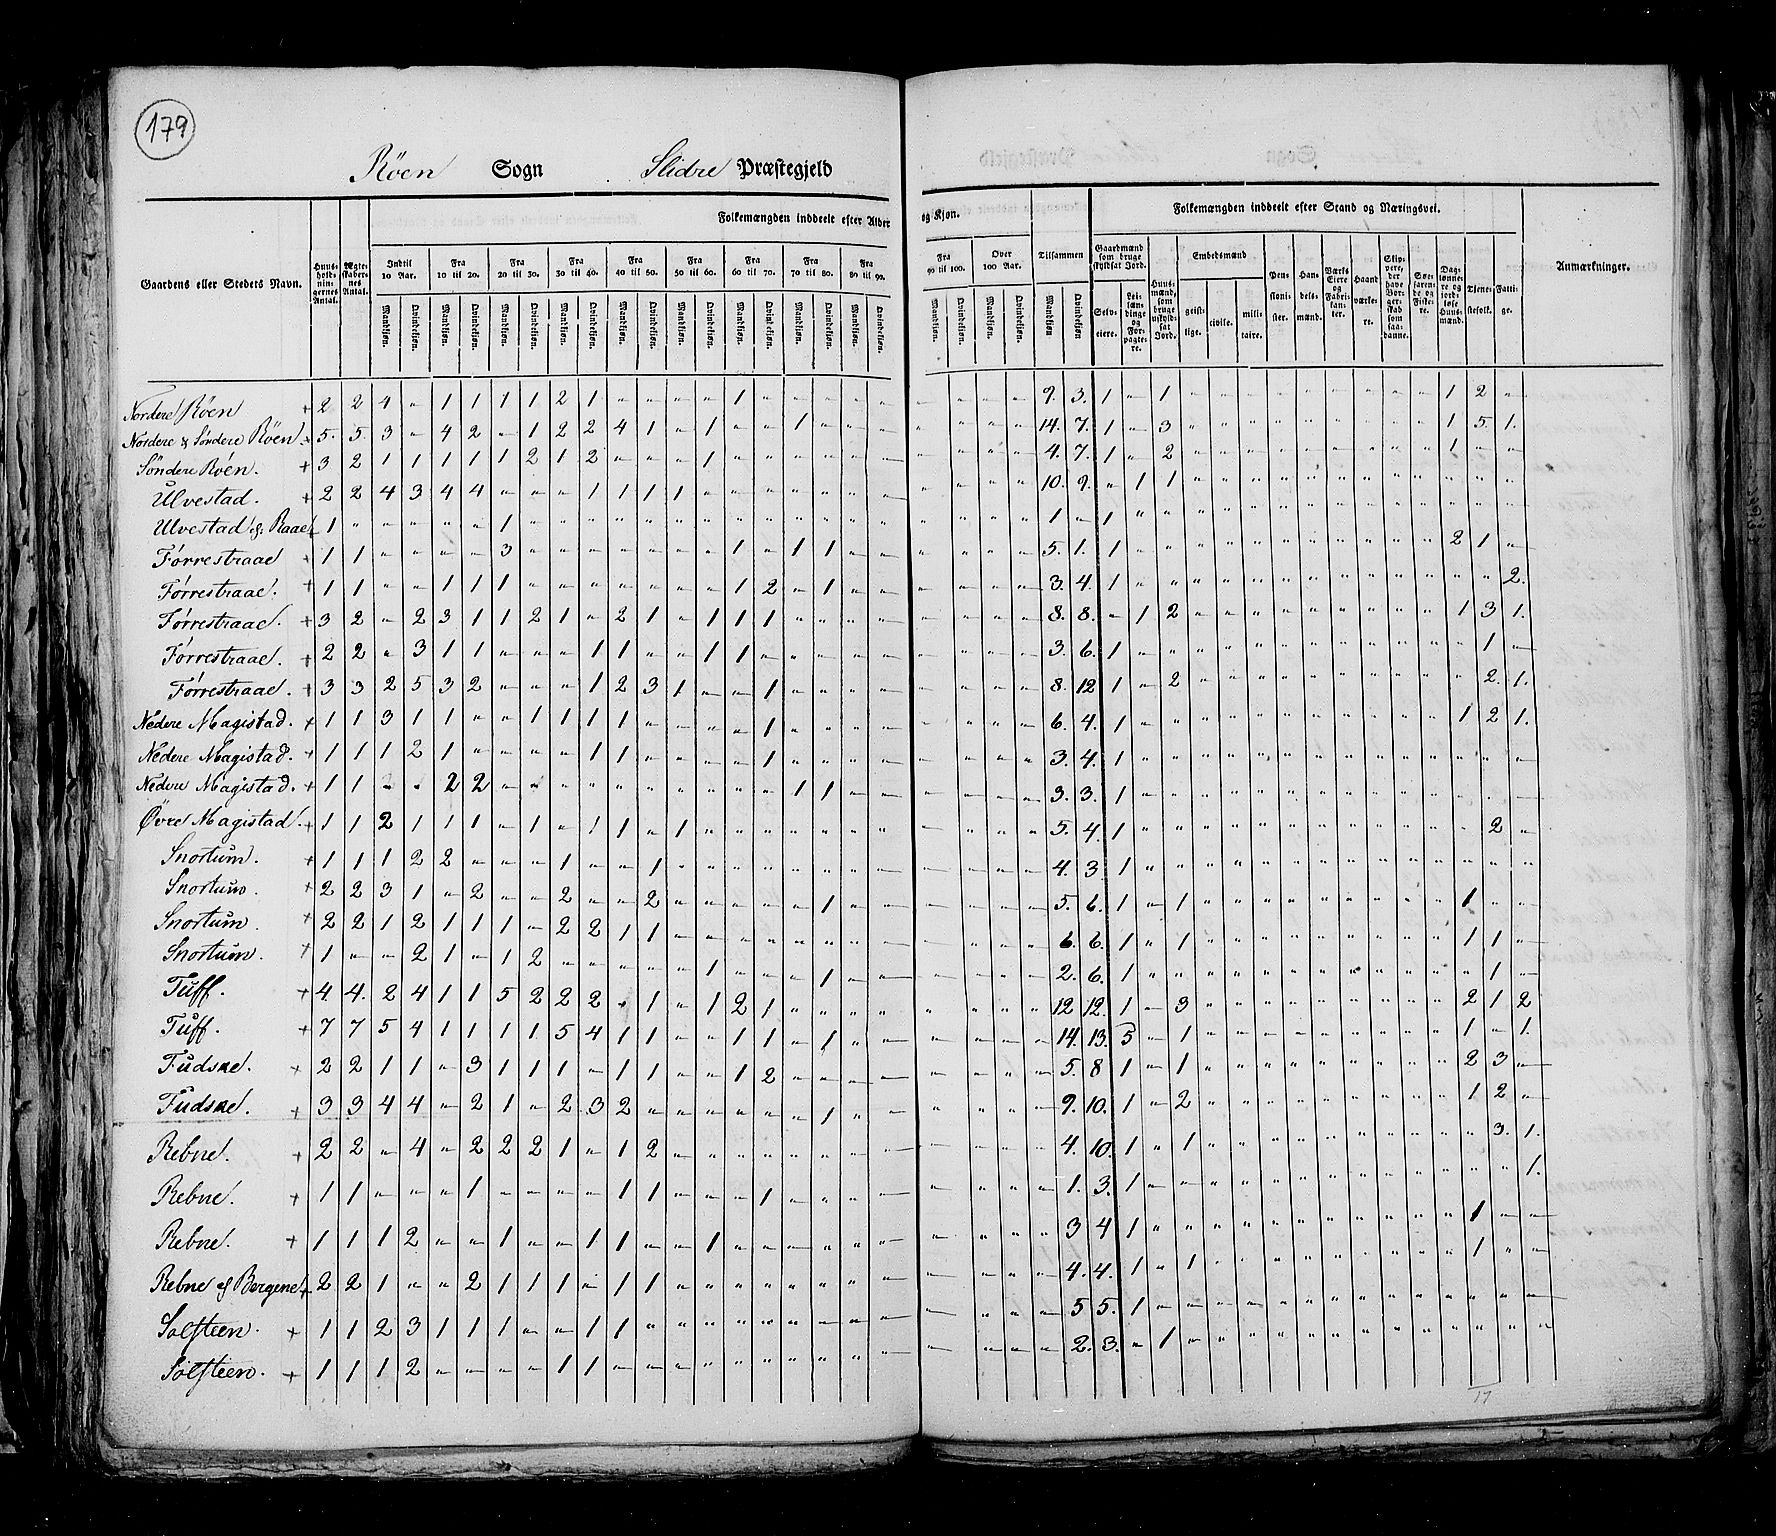 179
Röen Sogn Slidre Præstegjeld
Gaardens eller Stedets Navn.
Huusholdningernes Antal.
Ægteskabernes Antal.
Folkemængden inddeelt efter Alder og Kjøn.
Indtil 10 Aar. Fra 10 til 20. Fra 20 til 30. Fra 30 til 40. Fra 40 til 50. Fra 50 til 60. Fra 60 til 70. Fra 70 til 80. Fra 80 til 90. Fra 90 til 100. Over 100 Aar. Tilsammen
Mandkjøn. Qvindekjøn.
Folkemængden inddeelt efter Stand og Næringsvei.
Gaardmænd som bruge skyldsat Jord.
Selveiere. Leilændinge og Forpagtere.
Huusmænd, som bruge uskyldsat Jord.
Embedsmænd
geistlige. civile. militaire.
Pensionister. Handelsmænd. Værks Eiere og Fabrikanter. Haandværkere.
Daglønnere og jordløse Huusmænd. Tjenestefolk. Fattige.
Anmærkninger.
Nordre Röen + 2 2 4 „ 1 1 1 1 2 1 „ „ „ „ 1 9. 3. 1 „ 1 1 2 „
Nordere & Söndere Röen + 5. 5. 3 „ 4 2 „ 1 2 2 4 1 „ 1 „ „ 1 14. 7. 1 „ 3 1 5. 1.
Söndere Röen. + 3 2 1 1 1 1 1 2 1 2 „ „ „ 1 4. 7. 1 „ 2 1 „ „
Ulvestad. + 2 2 4 3 4 4 „ „ „ 1 1 1 1 10. 9. „ 1 1
Ulvestad & Raae + 1 „ „ „ „ „ 1 1 „ 1
Förrestraae + 1 1 „ „ „ „ 3 „ „ „ „ „ „ „ 1 „ 1 1 5. 1. 1 2 1 „
Förrestraae. + 1 1 „ „ 1 1 1 „ „ „ „ „ „ „ 1 2 „ 1 3. 4. 1 2.
Förrestraae. + 3 2 „ 2 3 1 1 2 1 „ 2 1 „ 1 1 1 8. 8. „ 1 2 1 3 1.
Förrestraae. + 2 2 „ 3 1 1 „ „ „ 1 1 „ „ 1 1 3. 6. 1 1 „
Förrestraae. + 3 3 2 5 3 2 „ „ „ 1 2 3 1 „ „ 1 8. 12 1 „ 2 2. 1.
Nedere Magistad. + 1 1 3 1 1 „ „ 1 1 1 1 „ „ „ „ 1 6. 4. 1 1 2 1.
Nedere Magistad. + 1 1 1 2 1 „ „ „ „ 1 1 „ „ „ „ 1 3. 4. 1
Nedere Magistad. + 1 1 „ „ 2 2 „ „ „ „ „ „ „ „ „ „ 1 1 3. 3. 1
Övre Magistad. + 1 1 2 1 1 1 „ 1 „ 1 1 „ 1 5. 4. 1 2 „
Snortum. + 1 1 1 2 2 „ „ „ 1 „ „ 1 4. 3 1
Snortum. + 2 2 3 1 „ 2 „ „ 2 „ „ 2 „ „ „ „ „ 1 5. 6. 1 „ 1 1 „ „
Snortum. + 2 2 1 2 1 1 1 „ 2 2 1 1 6. 6. 1 „ 1 1 1 „
Snortum. + 1 „ „ 2 1 „ 1 2 „ „ „ „ „ 1 „ „ „ 1 2. 6. 1 1 „
Tuff. + 4 4. 2 4 1 1 5 2 2 2 „ 1 „ 1 2 1 12 12. 1 „ 3 2 1 2
Tuff. + 7 7 5 4 1 1 1 1 5 4 1 1 „ „ 1 1 „ 1 14. 13. 5 „ 1 1 „ 1.
Fudsne. + 2 2 1 1 „ 3 1 1 1 „ 1 1 „ „ 1 2 5. 8 1 „ 1 2 3 „
Fudsne. + 3 3 4 4 „ 2 1 „ 2 3 2 „ „ „ „ „ „ 1 9. 10. 1 „ 2 1 2 „
Rebne. + 2 2 „ 4 „ 2 2 2 1 „ 1 2 4. 10. 1 „ 1 3. 1.
Rebne. + 1 1 „ „ „ 1 „ „ „ „ 1 1 „ „ „ 1 1. 3. 1 1.
Rebne. + 1 1 1 2 „ „ 1 „ „ 1 1 „ „ 1 3 4 1 1 „ „
Rebne & Bergene + 2 2 1 „ „ 2 1 1 1 „ 1 1 4. 4. 1 „ 1 1 „ „
Solfteen. + 1 1 2 3 1 1 1 „ „ 1 1 5 5. 1
Solfteen. + 1 1 1 2 „ „ „ „ 1 1 2. 3. „ 1
17